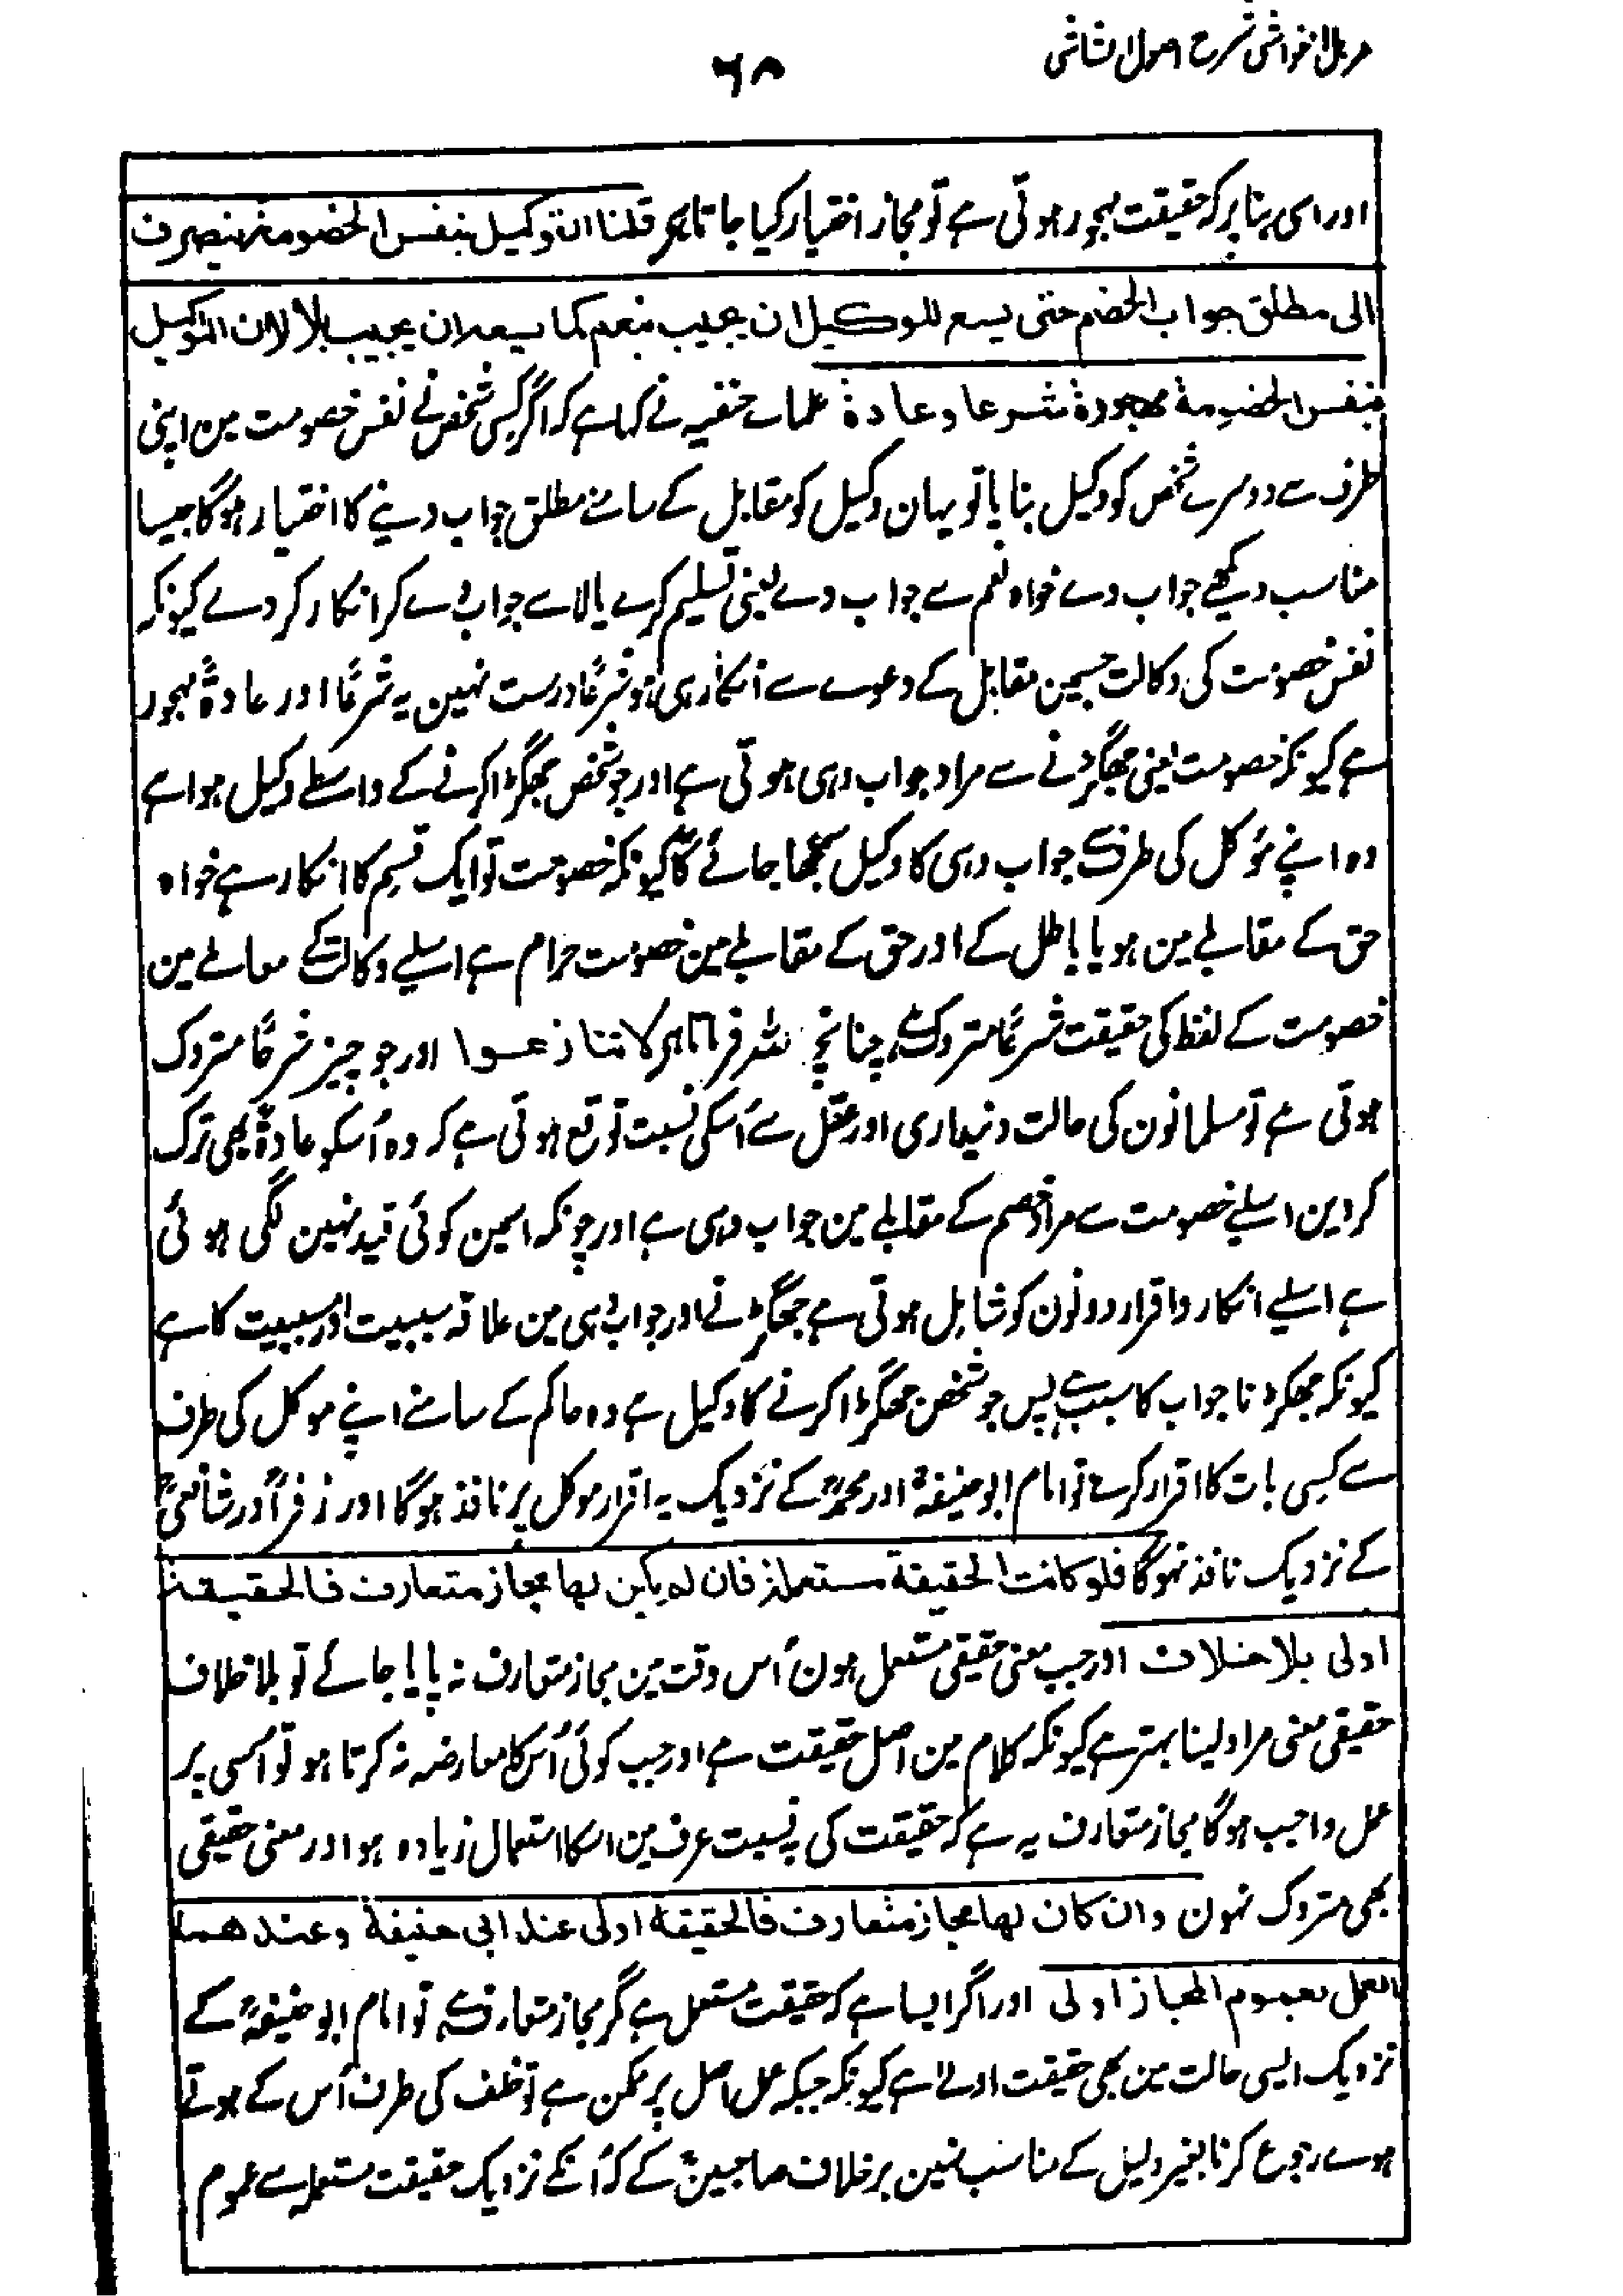 مزیل الغواشی شرح اصول الشاشی
۶۸
اور اسی بنا پر کہ حقیقت مہجور ہوتی ہے تو مجاز اختیار کیا جاتا ہے قلنا ان التوکیل بنفس الخصومۃ ینصرف
الی مطلق جواب الخصم حتی یسع للوکیل ان یجیب بنعم کما یسعہ ان یجیب بلا لان التوکیل
بنفس الخصومۃ مھجورۃ شرعا وعادۃ علماے حنفیہ نے کہا ہے کہ اگر کسی شخص نے نفس خصومت مین اپنی
طرف سے دوسرے شخص کو وکیل بنایا تو یہان وکیل کو مقابل کے سامنے مطلق جواب دینے کا اختیار ہوگا جیسا
مناسب دیکھے جواب دے خواہ نعم سے جواب دے یعنی تسلیم کرے یا لا سے جواب دے کر انکار کر دے کیونکہ
نفس خصومت کی وکالت جسمین مقابل کے دعوے سے انکار ہی ہو شرعًا درست نہین یہ شرعًا اور عادۃً مہجور
ہے کیونکہ خصومت یعنی جھگڑنے سے مراد جواب دہی ہوتی ہے اور جو شخص جھگڑا کرنے کے واسطے وکیل ہوا ہے
وہ اپنے مؤکل کی طرف سے جواب دہی کا وکیل سمجھا جائے گا کیونکہ خصومت تو ایک قسم کا انکار ہے خواہ
حق کے مقابلے مین ہو یا باطل کے اور حق کے مقابلے مین خصومت حرام ہے اسلیے وکالت کے معاملے مین
خصومت کے لفظ کی حقیقت شرعًا متروک ہے چنانچہ اللہ فرماتا ہے لا تنازعوا اور جو چیز شرعًا متروک
ہوتی ہے تو مسلمانون کی حالت دینداری اور عقل سے اُسکی نسبت توقع ہوتی ہے کہ وہ اُسکو عادۃً بھی ترک
کردین اسلیے خصومت سے مراد خصم کے مقابلے مین جواب دہی ہے اور چونکہ اسمین کوئی قید نہین لگی ہوئی
ہے اسلیے انکار و اقرار دونون کو شامل ہوتی ہے جھگڑنے اور جواب دہی مین علاقہ سببیت اور مسببیت کا ہے
کیونکہ جھگڑنا جواب کا سبب ہے پس جو شخص جھگڑا کرنے کا وکیل ہے وہ حاکم کے سامنے اپنے موکل کی طرف
سے کسی بات کا اقرار کرے تو امام ابو حنیفہؒ اور محمدؒ کے نزدیک یہ اقرار موکل پر نافذ ہوگا اور زفرؒ اور شافعیؒ
کے نزدیک نافذ نہوگا فلو کانت الحقیقۃ مستعملۃ فان لم یکن لھا مجاز متعارف فالحقیقۃ
اولی بلا خلاف اور جب معنی حقیقی مستعمل ہون اُس وقت مین مجاز متعارف نہ پایا جائے تو بلا خلاف
حقیقی معنی مراد لینا بہتر ہے کیونکہ کلام مین اصل حقیقت ہے اور جب کوئی اُس کا معارضہ نہ کرتا ہو تو اُسی پر
عمل واجب ہوگا مجاز متعارف یہ ہے کہ حقیقت کی بہ نسبت عرف مین اسکا استعمال زیادہ ہو اور معنی حقیقی
بھی متروک نہون وان کان لھا مجاز متعارف فالحقیقۃ اولی عند ابی حنیفۃ وعندھما
العمل بعموم المجاز اولی اور اگر ایسا ہے کہ حقیقت مستعمل ہے مگر مجاز متعارف ہے تو امام ابو حنیفہؒ کے
نزدیک ایسی حالت مین بھی حقیقت اولے ہے کیونکہ جبکہ عمل اصل پر ممکن ہے تو خلف کی طرف اُس کے ہوتے
ہوے رجوع کرنا بغیر دلیل کے مناسب نہین برخلاف صاحبینؒ کے کہ اُنکے نزدیک حقیقت مستعملہ سے عموم